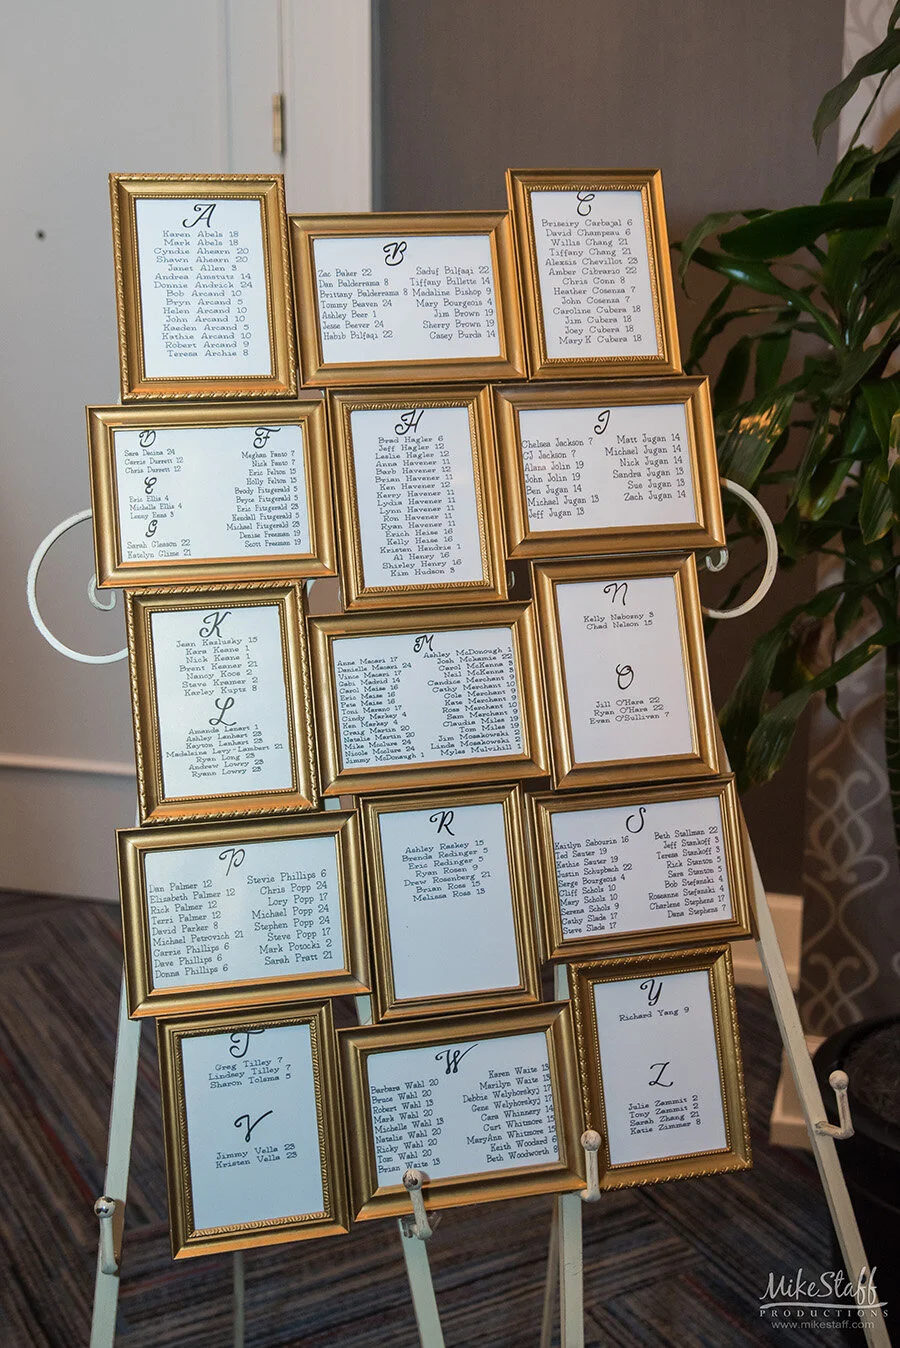 A
Karen Abels 18
Mark Abels 18
Cyndie Ahearn 20
Shawn Ahearn 20
Janet Allen 3
Andrea Amstutz 14
Donnie Andrick 24
Bob Arcand 10
Bryn Arcand 5
Helen Arcand 10
John Arcand 10
Kaeden Arcand 5
Kathie Arcand 10
Robert Arcand 9
Teresa Archie 8
B
Zac Baker 22
Dan Balderrama 8
Brittany Balderrama 8
Tommy Beaven 24
Ashley Beer 1
Jesse Beever 24
Habib Bilfaqi 22
Saduf Bilfaqi 22
Tiffany Billette 14
Madaline Bishop 9
Mary Bourgeois 4
Jim Brown 19
Sherry Brown 19
Casey Burda 14
C
Briseiry Carbajal 6
David Champeau 6
Willis Chang 21
Tiffany Chang 21
Alexsis Chevillot 23
Amber Cibrario 22
Chris Conn 8
Heather Cosenza 7
John Cosenza 7
Caroline Cubera 18
Jim Cubera 18
Joey Cubera 18
Mary K Cubera 18
D
Sara Decina 24
Carrie Durrett 12
Chris Durrett 12
E
Eric Ellis 4
Michelle Ellis 4
Lenny Esau 3
G
Sarah Gleason 22
Katelyn Glime 21
F
Meghan Fanto 7
Nick Fanto 7
Eric Felton 15
Holly Felton 15
Brody Fitzgerald 5
Bryce Fitzgerald 5
Eric Fitzgerald 23
Kendall Fitzgerald 5
Michael Fitzgerald 23
Denise Freeman 19
Scott Freeman 19
H
Brad Hagler 6
Jeff Hagler 12
Leslie Hagler 12
Anna Havener 11
Barb Havener 12
Brian Havener 11
Ken Havener 12
Kerry Havener 11
Lydia Havener 11
Lynn Havener 11
Ron Havener 11
Ryan Havener 11
Erich Heise 16
Kelly Heise 16
Kristen Hendrie 1
Al Henry 16
Shirley Henry 16
Kim Hudson 3
J
Chelsea Jackson 7
CJ Jackson 7
Alana Jolin 19
John Jolin 19
Ben Jugan 14
Michael Jugan 13
Jeff Jugan 13
Matt Jugan 14
Michael Jugan 14
Nick Jugan 14
Sandra Jugan 13
Sue Jugan 13
Zach Jugan 14
K
Jean Kazlusky 15
Kara Keane 1
Nick Keane 1
Brent Keaner 21
Nancy Koos 2
Steve Kramer 2
Karley Kuptz 8
L
Amanda Lenart 1
Ashley Lenhart 23
Kayton Lenhart 23
Madeleine Levy-Lambert 21
Ryan Long 23
Andrew Lowry 23
Ryann Lowry 23
M
Anne Macari 17
Danielle Macari 24
Vince Macari 17
Gabi Madrid 14
Carol Maise 16
Eric Maise 16
Pete Maise 16
Toni Marano 17
Cindy Markey 4
Ken Markey 4
Craig Martin 20
Natalie Martin 20
Mike Mclure 24
Nicole Mclure 24
Jimmy McDonaugh 1
Ashley McDonough 1
Josh Mckamie 22
Carol McKenna 3
Neil McKenna 3
Candice Merchant 9
Cathy Merchant 10
Cole Merchant 9
Kate Merchant 9
Ross Merchant 10
Sam Merchant 9
Claudia Miles 19
Tom Miles 19
Jim Mosakowski 2
Linda Mosakowski 2
Myles Mulvihill 1
N
Kelly Nabozny 3
Chad Nelson 15
O
Jill O'Hara 22
Ryan O'Hara 22
Evan O'Sullivan 7
P
Dan Palmer 12
Elizabeth Palmer 12
Rick Palmer 12
Terri Palmer 12
David Parker 8
Michael Petrovich 21
Carrie Phillips 6
Dave Phillips 6
Donna Phillips 6
Stevie Phillips 6
Chris Popp 24
Lory Popp 17
Michael Popp 24
Stephen Popp 24
Steve Popp 17
Mark Potocki 2
Sarah Pratt 21
R
Ashley Raskey 15
Brenda Redinger 5
Eric Redinger 5
Ryan Rosen 9
Drew Rosenberg 21
Brian Ross 15
Melissa Ross 13
S
Kaitlyn Sabourin 16
Ted Sauter 19
Kathie Sauter 19
Justin Schupbach 22
Serge Bourgeois 4
Cliff Schols 10
Mary Schols 10
Serena Schols 9
Cathy Slade 17
Steve Slade 17
Beth Stallman 22
Jeff Stankoff 3
Teresa Stankoff 3
Rick Stanton 5
Sara Stanton 5
Bob Stefanski 4
Roseanne Stefanski 4
Charlene Stephens 17
Dana Stephens 7
T
Greg Tilley 7
Lindsey Tilley 7
Sharon Tolsma 5
V
Jimmy Vella 23
Kristen Vella 23
W
Barbara Wahl 20
Bruce Wahl 20
Robert Wahl 13
Mark Wahl 20
Michelle Wahl 13
Natalie Wahl 20
Ricky Wahl 20
Tom Wahl 20
Brian Waite 13
Karen Waite 13
Marilyn Waite 13
Debbie Welyhorskyj 17
Gene Welyhorskyj 17
Cara Whinnery 14
Curt Whitmore 15
MaryAnn Whitmore 15
Keith Woodard 6
Beth Woodworth 8
Y
Richard Yang 9
Z
Julie Zammit 2
Tony Zammit 2
Sarah Zhang 21
Katie Zimmer 8
MikeStaff
PRODUCTIONS
www.mikestaff.com